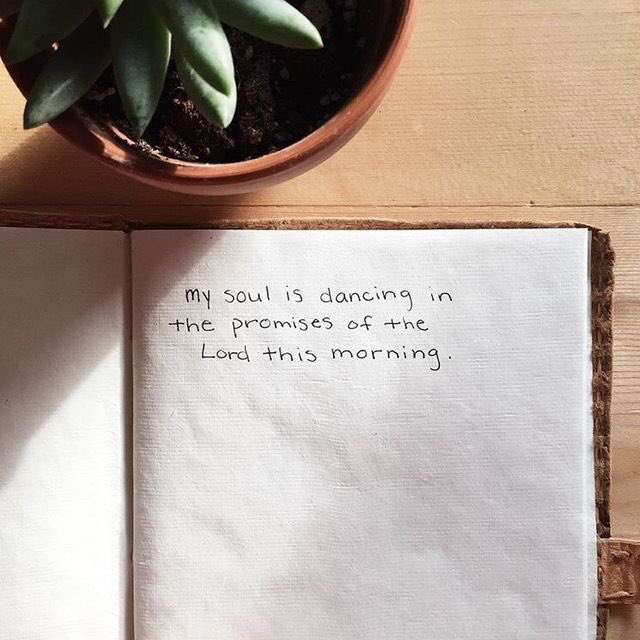 my soul is dancing in
the promises of the
Lord this morning.